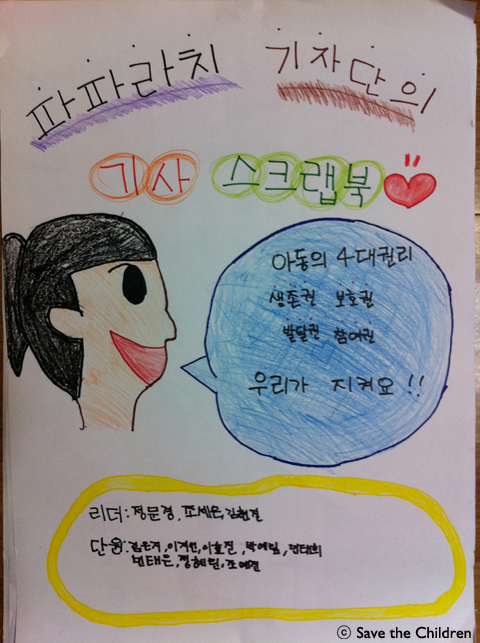 파파라치 기자단의
기사 스크랩북
아동의 4대권리
생존권 보호권
발달권 참여권
우리가 지켜요!!
리더: 정문경, 조세은, 김현진
단원: 김은지, 이지민, 이효진, 박예림,
정혜원, 조예진
© Save the Children